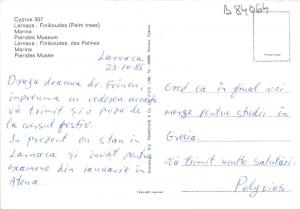 Cyprus 307
Larnaca : Finikoudes (Palm trees)
Marina
Pierides Museum
Larnaca : Finikoudes, des Palmes
Marina
Pierides Musée
B 84064
Larnaca
23-10-86
Draga doamna dr. Frincu,
împreuna cu vederea aceasta
va trimit și o poza de
la cursul festiv.
În prezent eu stau în
Larnaca și învăț pentru
examene din ianuarie în
Atena.
Cred că în final voi
merge pentru studii în
Grecia.
Va trimit multe salutări.
Polyvios
Copyright reserved